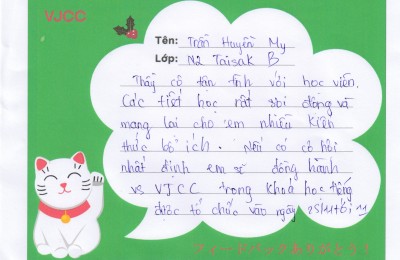 VJCC
Tên: Trần Huyền My
Lớp: N2 Taisak B
Thầy cô tận tình với học viên.
Các tiết học rất sôi động và
mang lại cho em nhiều kiến
thức bổ ích. Nếu có cơ hội
nhất định em sẽ đồng hành
vs VJCC trong khoá học tiếng
được tổ chức vào ngày
フィードバックありがとう!